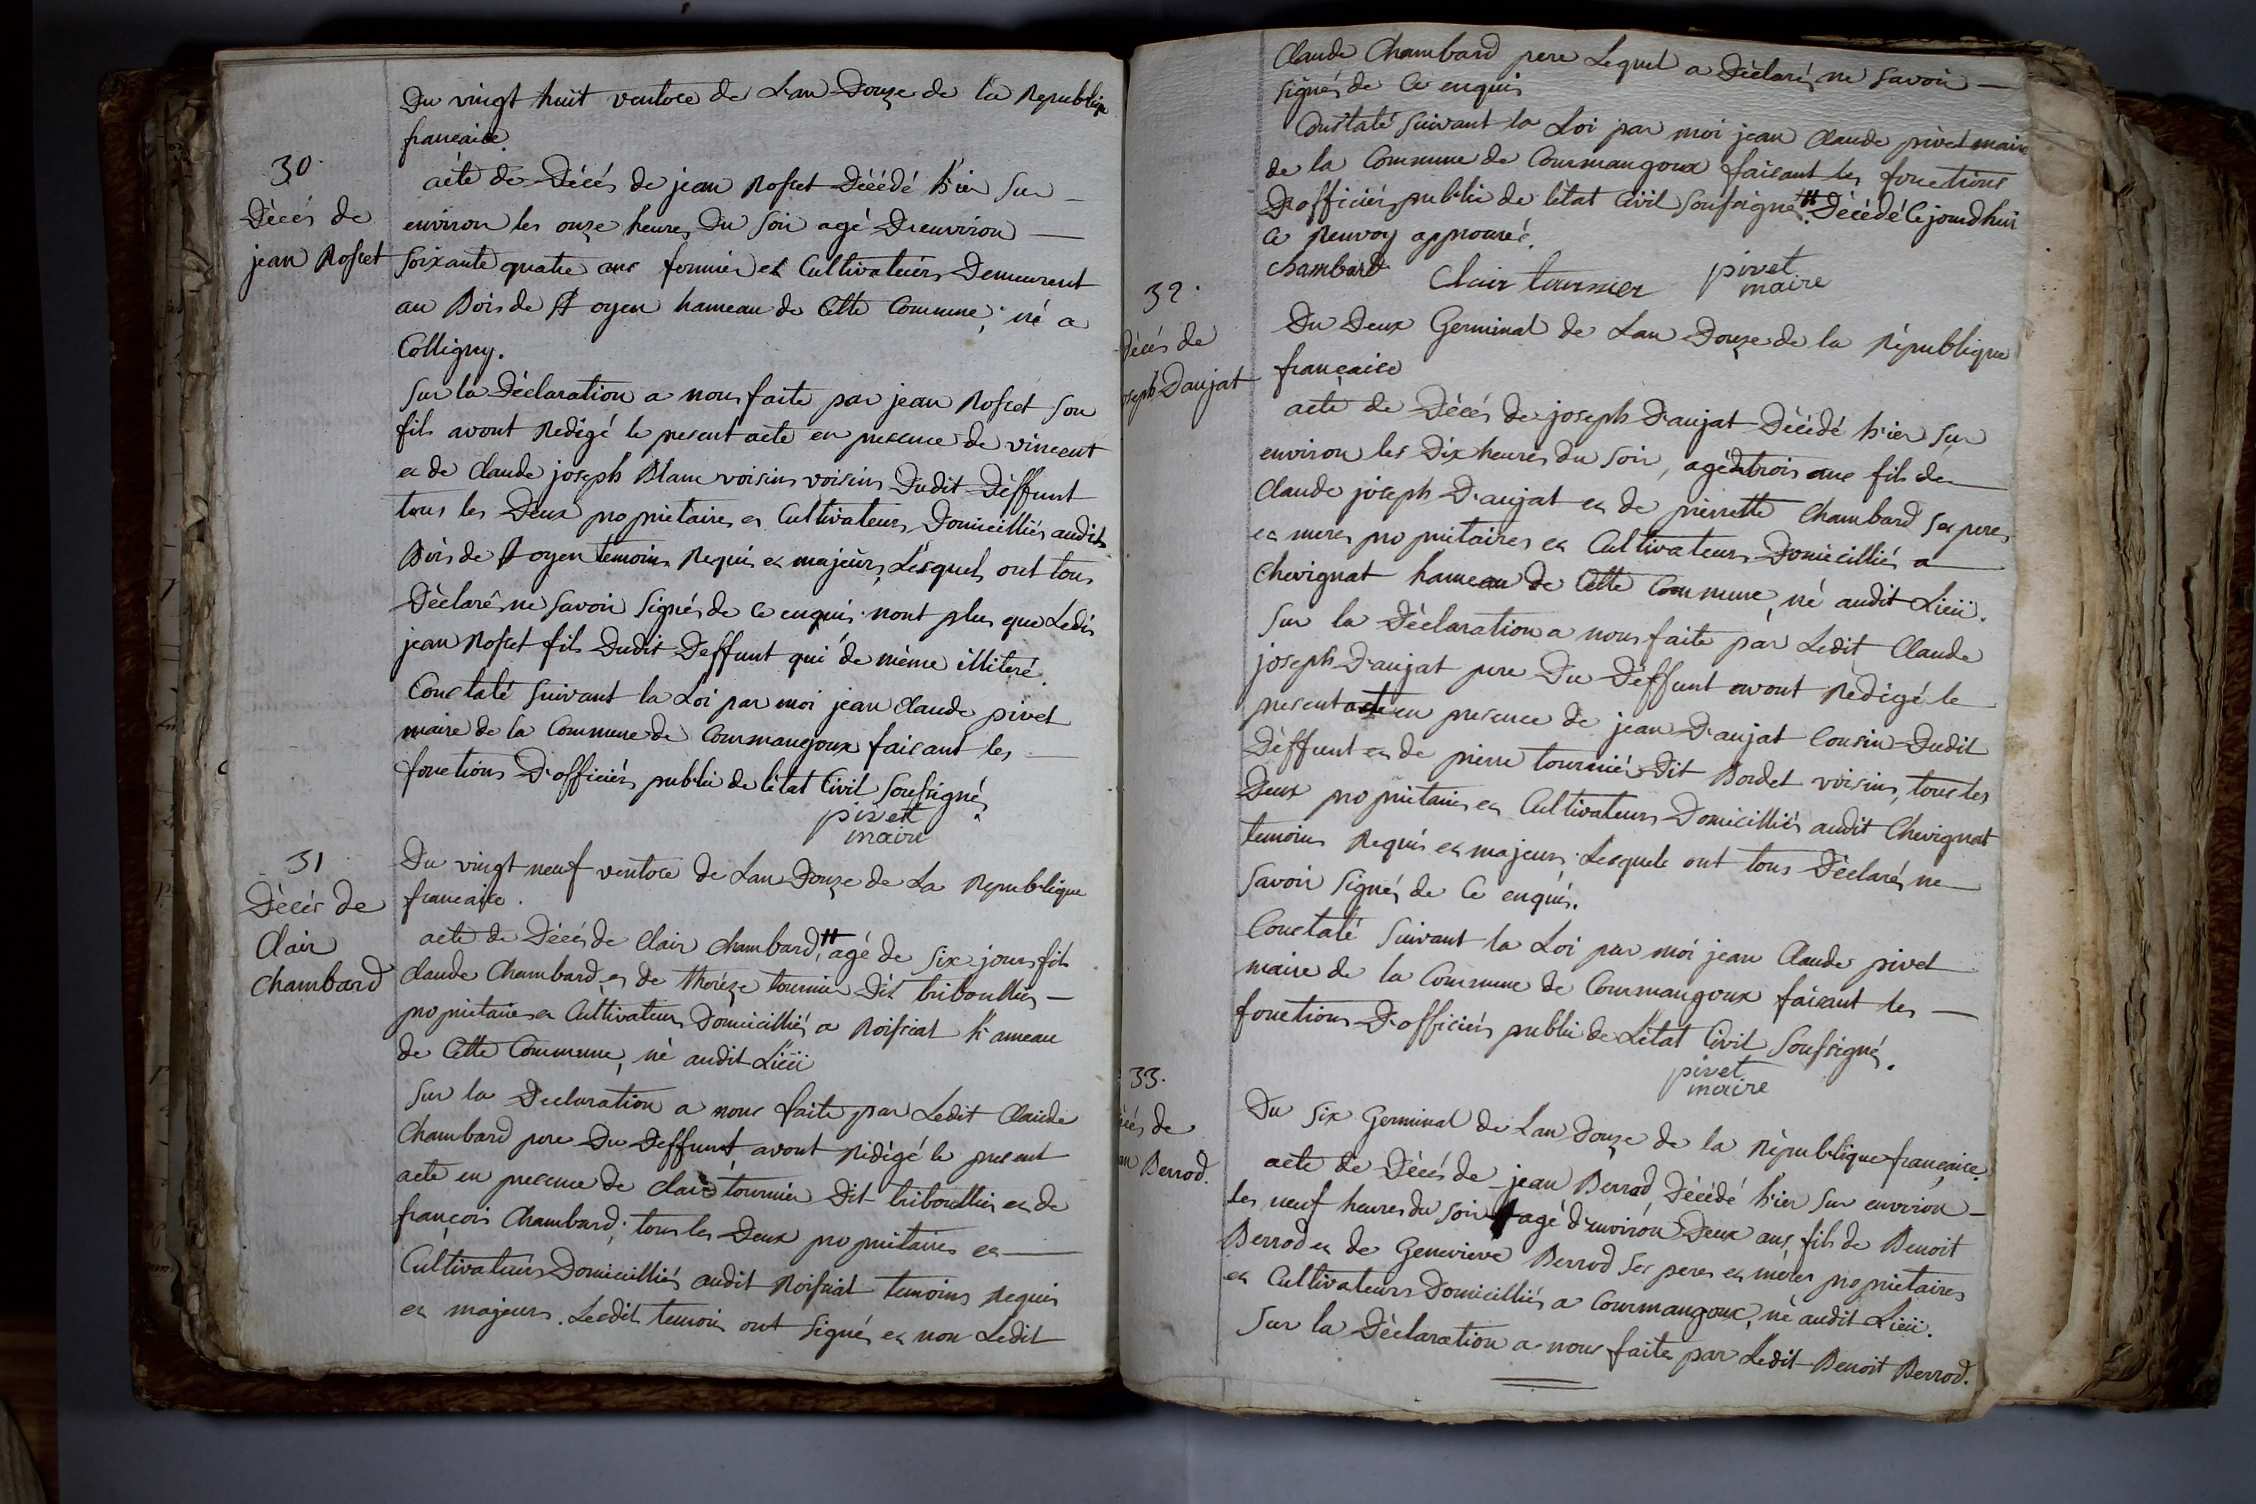 Du vingt huit ventose de Lan Douze de la Republique
francaise.
30.
Décés de
jean Rosset
acte de Décés de jean Rosset Décédé hier sur
environ les onze heures Du soir agé D'environ
soixante quatre ans fermier et Cultivateurs Demeurent
au Bois de St oyen hameau de Cette Commune, né a
Colligny.
Sur la Déclaration a nous faite par jean Rosset son
fils avont Redigé le present acte en presence de vincent
et de Claude joseph Blanc voisins voisins Dudit Déffunt
tous les Deux propriétaires et Cultivateurs Domicilliés audit
Bois de St oyen temoins Requis et majeurs, Lesquels ont tous
Déclaré ne savoir signés de ce enquis. nont plus que Ledit
jean Rosset fils Dudit Deffunt qui de méme illiteré.
Constaté suivant la Loi par moi jean Claude pivet
maire de la Commune de Courmangoux faisant les
fonctions D'officiés public de létat Civil soussigné.
pivet
maire
31
Décés de
Clair
Chambard
Du vingt neuf ventose de Lan Douze de La Republique
francaise.
acte de Décés de Clair Chambard, # agé de six jours fils
Claude Chambard et de théréze tournier Dit triboullier
propriétaires et Cultivateurs Domicilliés a Roissiat hameau
de Cette Commune, né audit Lieü
Sur la Declaration a nous faite par Ledit Claude
Chambard pere Du Deffunt avont Rédigé le present
acte en presence de Clair tournier Dit triboullier et de
françois Chambard; tous les Deux propriétaires et
Cultivateurs Domicilliés audit Roissiat temoins Requis
et majeurs. Lesdit temoin ont signés et non Ledit
Claude Chambard pere Lequel a Déclaré ne savoir
signés de Ce enquis
Constaté suivant la Loi par moi jean Claude pivet maire
de la Commune de Courmangoux faisant les fonctions
D'officiés public de létat Civil soussigné. # Décédé Cejourdhui
Ce Renvoy approuvé.
chambard Clair tournier pivet
maire
32.
Décés de
oseph Daujat
Du Deux Germinal de Lan Douze de la République
française
acte de Décés de joseph D'aujat Décédé hier sur
environ les Dix heures du soir, agé de trois ans fils de
Claude joseph D'aujat et de pierrette Chambard ses peres
et meres propriétaires et Cultivateurs Domicilliés a
Chevignat hameau de Cette Commune, né audit Lieü.
Sur la Déclaration a nous faite par Ledit Claude
joseph D'aujat pere Du Déffunt avont Redigé le
present acte en presence de jean D'aujat Cousin Dudit
Déffunt et de pierre tournier Dit Bordet voisins, tous les
Deux propriétaires et Cultivateurs Domicilliés audit Chevignat
temoins Requis et majeurs. Lesquels ont tous Déclaré ne
savoir signés de Ce enquis.
Constaté suivant la Loi par moi jean Claude pivet
maire de la Commune de Courmangoux faisant les
fonctions D'officiés public de L'état Civil soussigné.
pivet
maire
33.
cés de
an Berrod.
Du six Germinal de Lan Douze de la République française.
acte de Décés de jean Berrod Décédé hier sur environ
les neuf heures du soir agé d'environ Deux ans, fils de Benoit
Berrod et de Genevieve Berrod ses peres et meres propriétaires
et Cultivateurs Domicilliés a Courmangoux, né audit Lieü.
Sur la Déclaration a nous faite par Ledit Benoit Berrod.